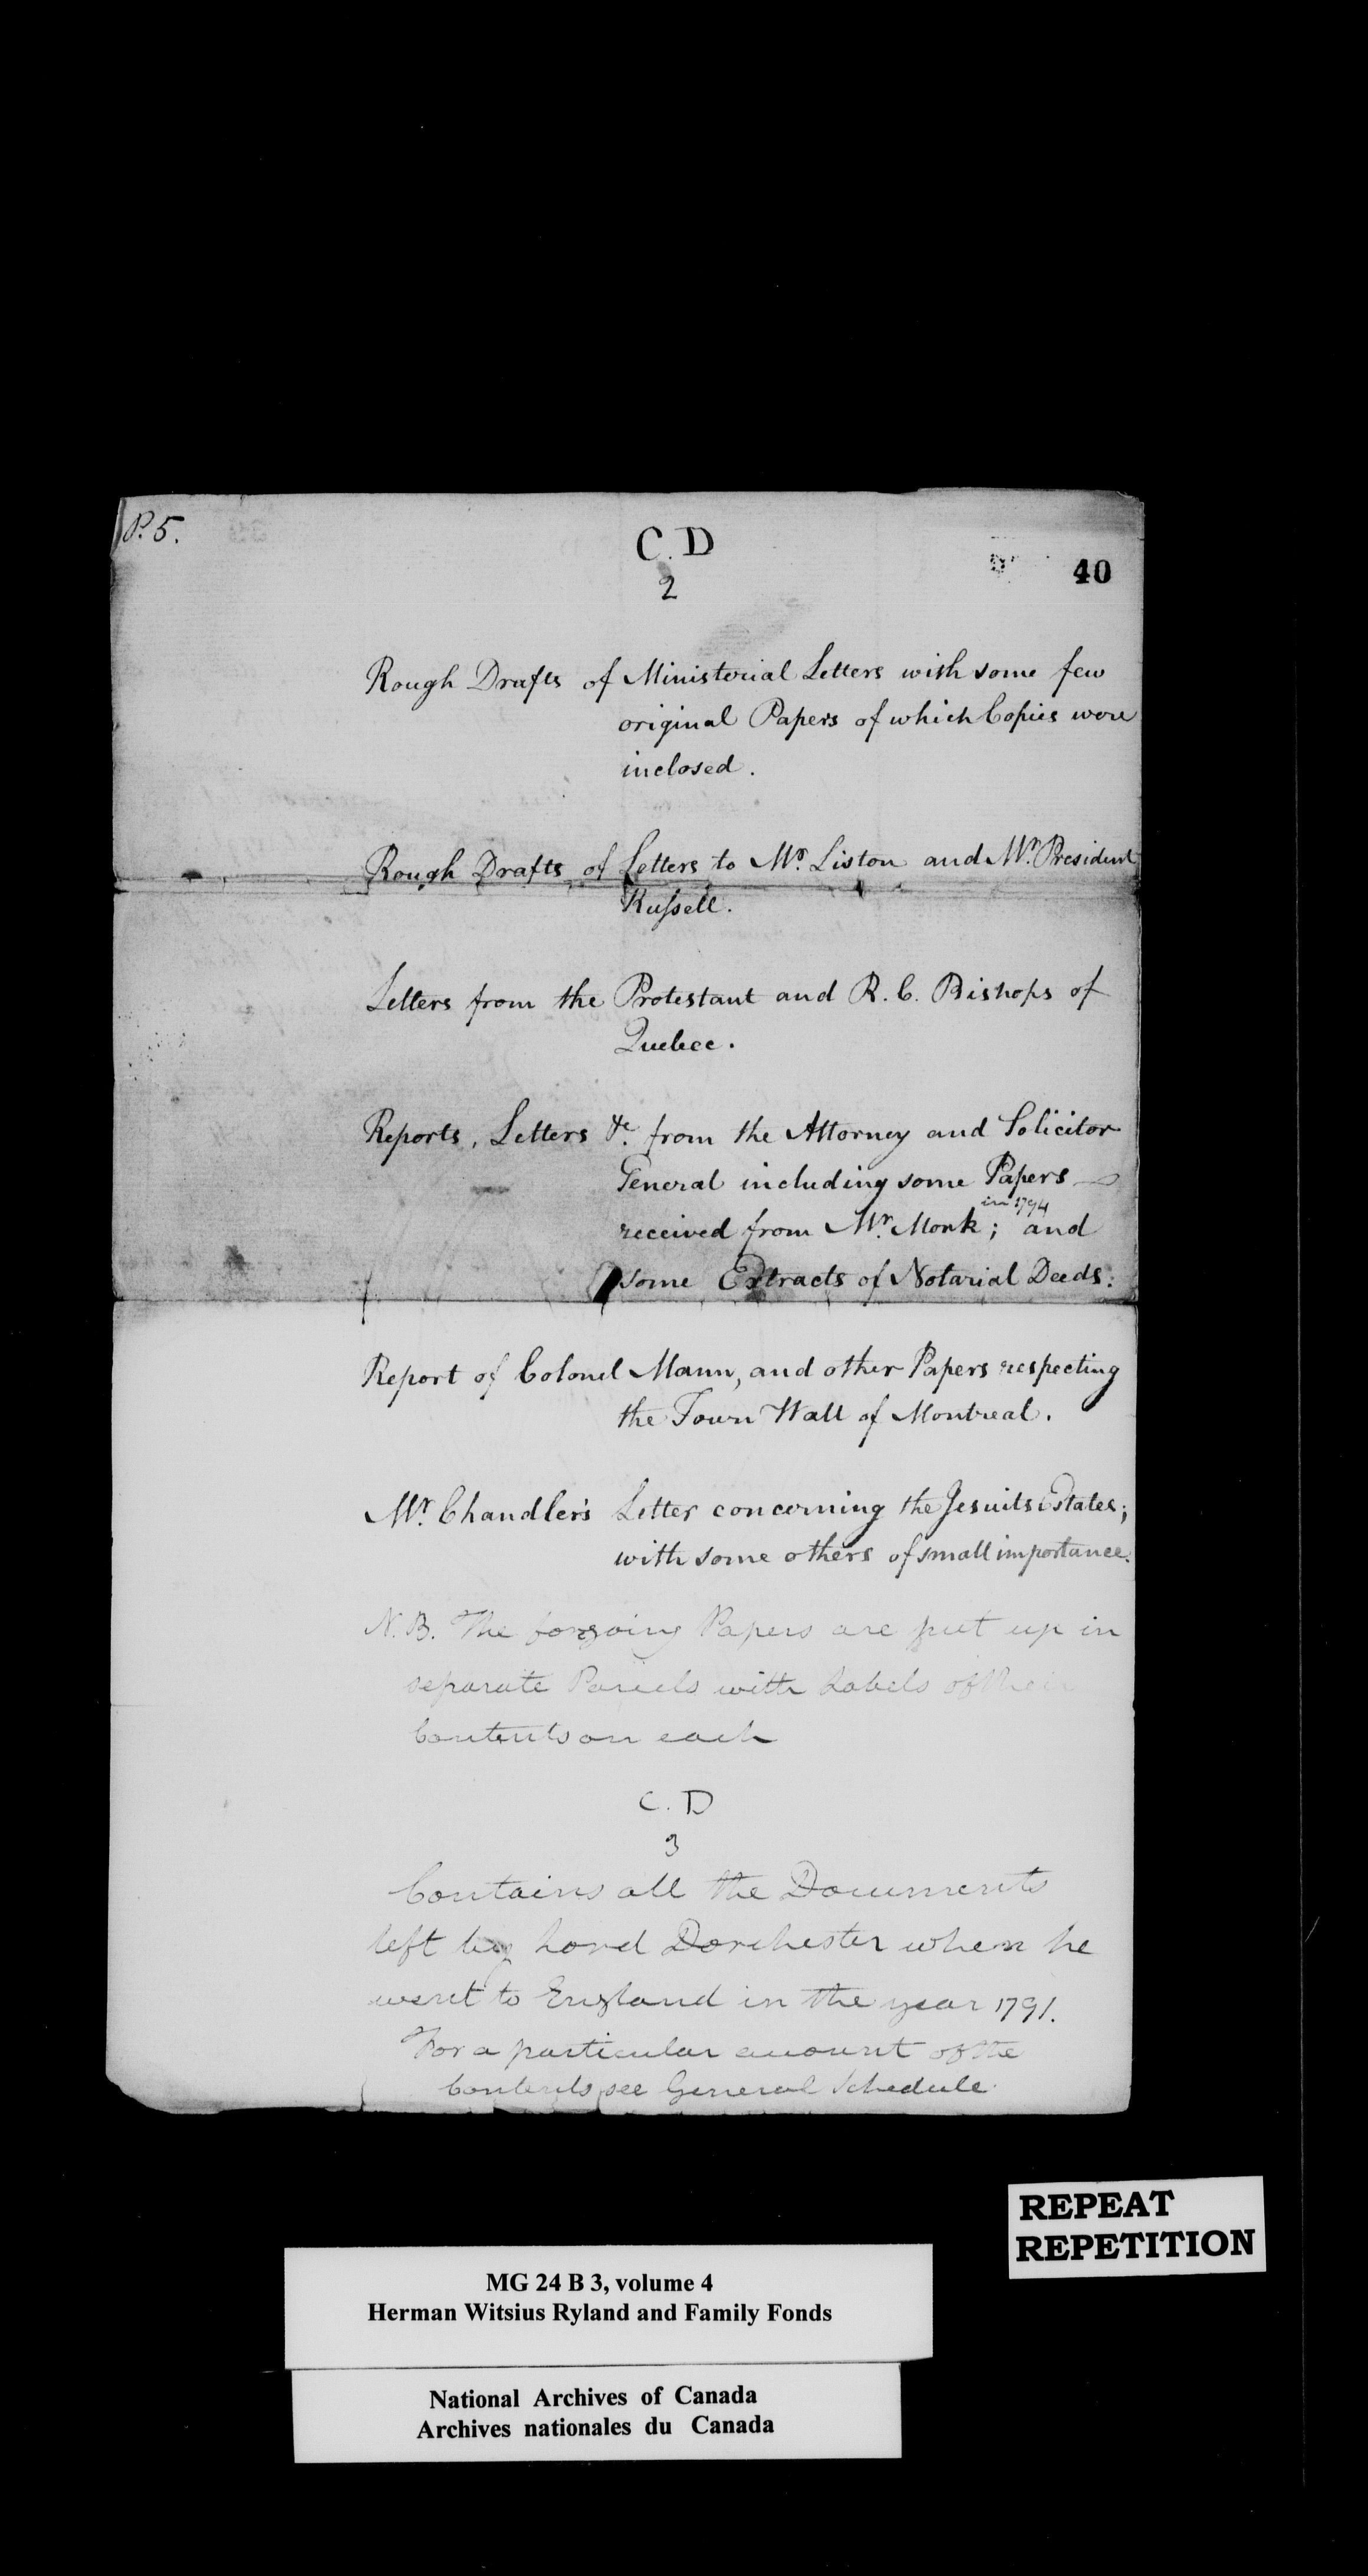 P. 5.
C. D
2
40
Rough Drafts of Ministerial Letters with some few
original Papers of which Copies were
inclosed.
Rough Drafts of Letters to Mr. Liston and Mr. President
Russell.
Letters from the Protestant and R. C. Bishops of
Quebec.
Reports, Letters &c. from the Attorney and Solicitor
General including some Papers
in 1794
received from Mr. Monk; and
some Extracts of Notarial Deeds.
Report of Colonel Mann, and other Papers respecting
the Town Wall of Montreal.
Mr. Chandler's Letter concerning the Jesuits Estates;
with some others of small importance.
N. B. The forgoing Papers are put up in
separate Parcels with Labels of their
Contents on each
C. D
3
Contains all the Documents
left by Lord Dorchester when he
went to England in the year 1791.
For a particular account of the
Contents see General Schedule.
REPEAT
REPETITION
MG 24 B 3, volume 4
Herman Witsius Ryland and Family Fonds
National Archives of Canada
Archives nationales du Canada